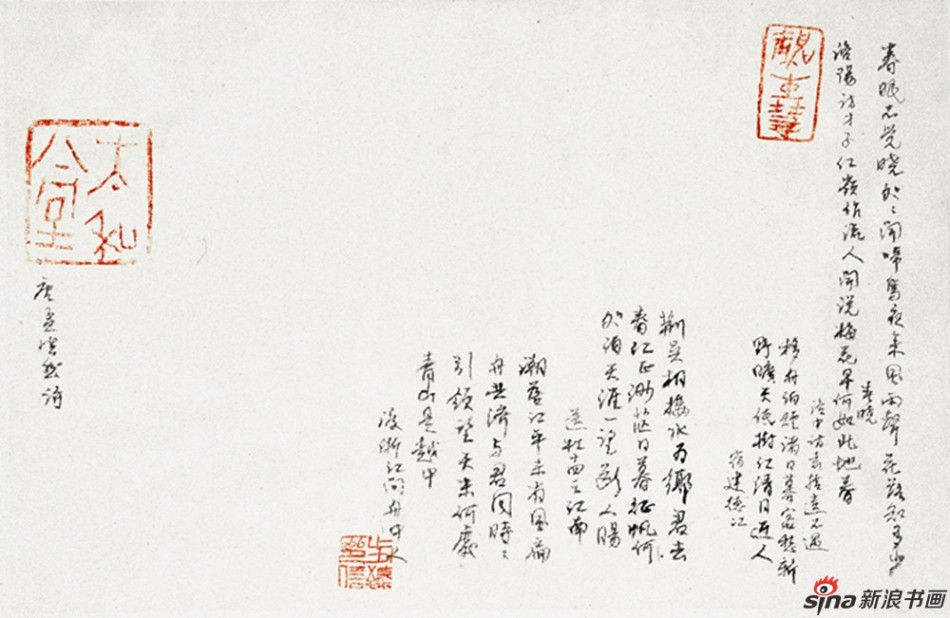 春眠不觉晓处々闻啼鸟夜来風雨聲花落知多少
春晓
洛陽访才子江嶺作流人闻说梅花早何如此地春
洛中访袁拾遗不遇
移舟泊烟渚日暮客愁新
野曠天低樹江清月近人
宿建德江
荆吴相接水为鄉君去
春江正渺茫日暮征帆何
处泊天涯一望断人腸
送杜十四之江南
潮落江平未有風扁
舟共濟与君同時々
引領望天末何處
青山是越中
渡浙江问舟中人
太和
唐孟浩然诗
sina新浪书画